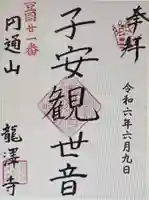 奉拝
令和六年六月九日
子安観世音
廿一番
円通山
龍澤寺